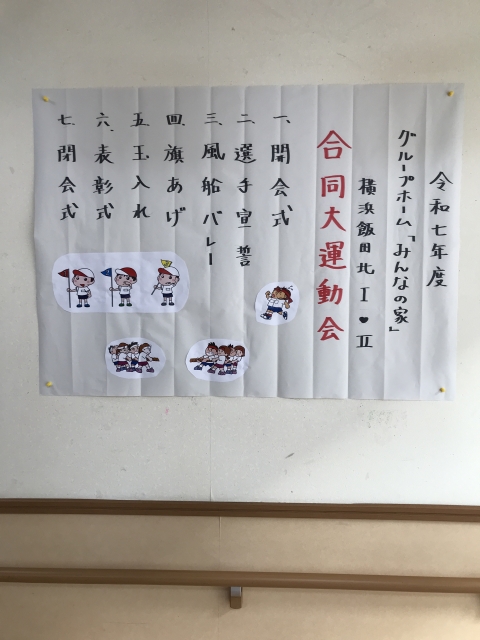 令和七年度
グループホーム「みんなの家」
横浜飯田北Ⅰ♥Ⅱ
合同大運動会
一、開会式
二、選手宣誓
三、風船バレー
四、旗あげ
五、玉入れ
六、表彰式
七、閉会式